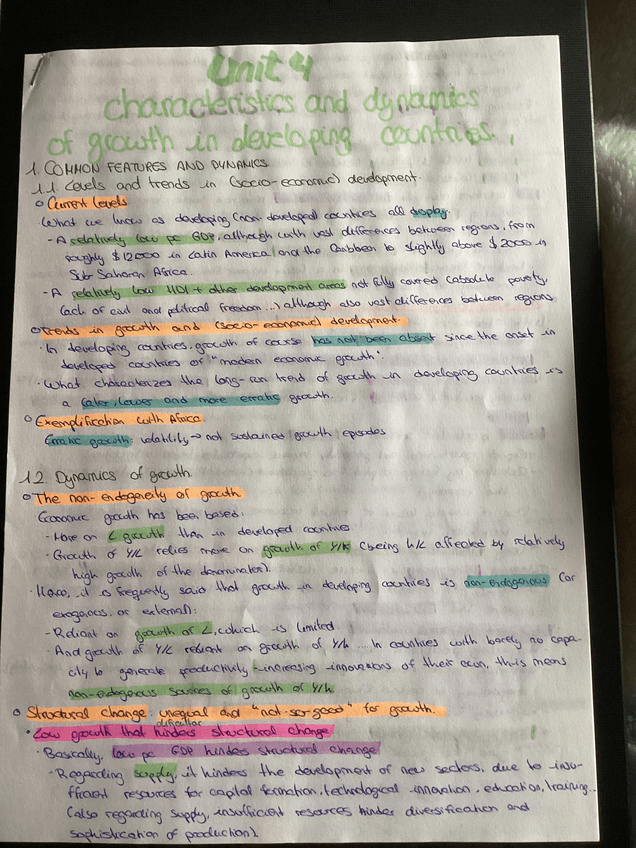 Unit 4
characteristics and dynamics
of growth in developing countries.
1. COMMON FEATURES AND DYNAMICS
1.1. Levels and trends in (socio-economic) development.
Current levels
What we know as developing (non developed) countries all display.
- A relatively low pc GDP, although with vast differences between regions, from
roughly $12000 in Latin America and the Caribbean to slightly above $2000 in
Sub Saharan Africa.
- A relatively low HDI + other development areas not fully covered (absolute poverty,
lack of civil and political freedom...) although also vast differences between regions.
Trends in growth and (socio-economic) development.
· In developing countries, growth of course has not been absent since the onset in
developed countries of "modern economic growth".
· What characterizes the long-run trend of growth in developing countries is
a later, lower and more erratic growth.
Exemplification with Africa.
Erratic growth: volatility → not sustained growth episodes
1.2. Dynamics of growth.
The non-endogeneity of growth
Economic growth has been based:
- More on L growth than in developed countries
- Growth of Y/L relies more on growth of Y/K (being K/L affected by relatively
high growth of the denominator).
· Also, it is frequently said that growth in developing countries is non-endogenous (or
exogenous, or external):
- Reliant on growth of L, which is limited.
- And growth of Y/L reliant on growth of Y/K ... In countries with barely no capa-
city to generate productivity-increasing innovations of their own, this means
non-endogenous sources of growth of Y/K
Structural change: unequal and "not-so-good" for growth.
· Low growth that hinders structural change
· Basically, low pc GDP hinders structural change
- Regarding supply, it hinders the development of new sectors, due to insu-
fficient resources for capital formation, technological innovation, education, training...
(also regarding supply, insufficient resources hinder diversification and
sophistication of production).